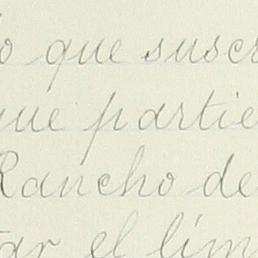 o que suscr
que partie
Rancho de
tar el lím